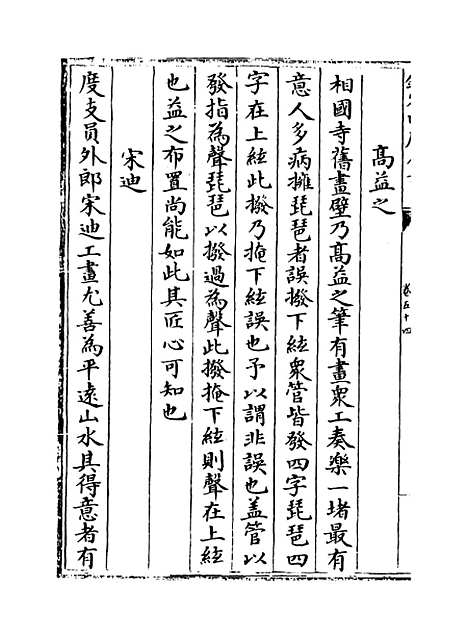 高益之
相國寺舊畫壁乃高益之筆有畫衆工奏樂一堵最有
意人多病擁琵琶者誤撥下絃衆管皆發四字琵琶四
字在上絃此撥乃掩下絃誤也予以謂非誤也盖管以
發指為聲琵琶以撥過為聲此撥掩下絃則聲在上絃
也益之布置尚能如此其匠心可知也
宋迪
度支員外郎宋迪工畫尤善為平逺山水其得意者有
卷五十四